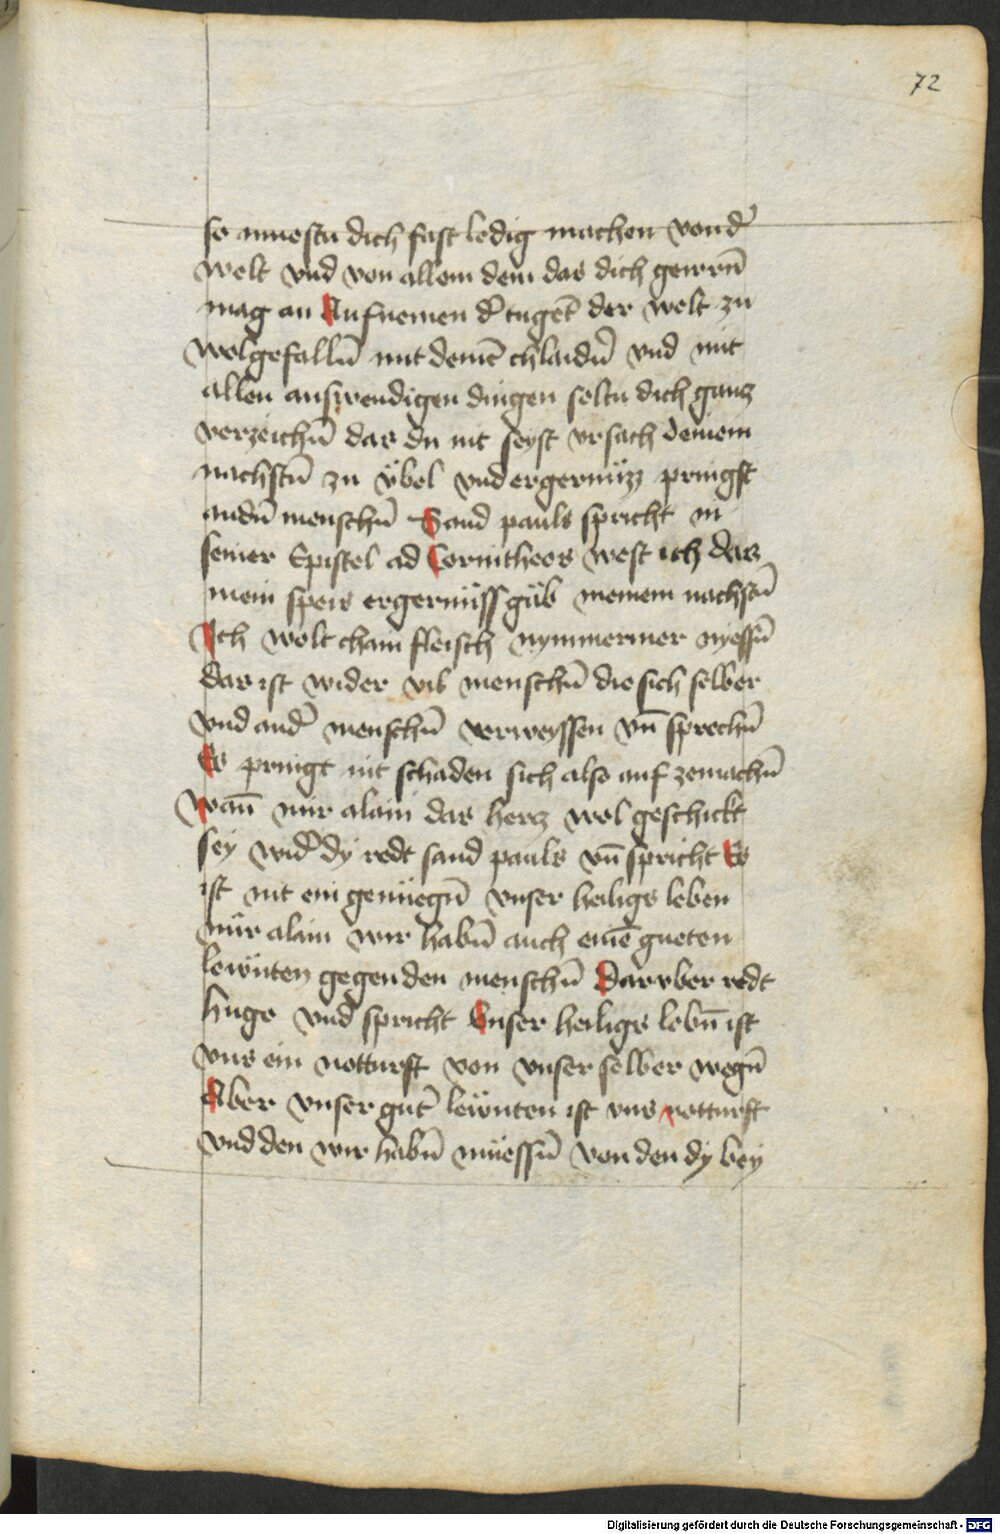 72
so muestu dich fast ledig machen von d̄
welt vnd von allem dem das dich geirrn̄
mag an Aufnemen d̄ tugēt der welt zu
wolgefalln̄ mit deinē chlaidn̄ vnd mit
allen auswendigen dingen soltu dich gantz
verzeichn̄ das du nit seyst vrsach deinem
nachstn̄ zu v̈bel vnd ergernüzz pringst
andn̄ menschn̄ Sand pauls spricht in
seiner Epistel ad Corintheos west ich das
mein speis ergernüss gäb meinem nachstn̄
Ich wolt chain fleisch nymmermer nyessn̄
das ist wider vil menschn̄ die sich selber
vnd and̄ menschn̄ verweyssen vn̄ sprechn̄
Es pringt nit schaden sich also auf zemachn̄
wan̄ mir alain das hertz wol geschickt
sey wid̄ dy redt sand pauls vn̄ spricht Es
ist nit ein genüegn̄ vnser heiligs leben
nür alain wir habn̄ auch einē gueten
lewnten gegen den menschn̄ Darvber redt
hugo vnd spricht Vnser heiligs lebn̄ ist
vns ein notturft von vnser selber wegn̄
Aber vnser gut̄ lewnten ist vns notturft
vnd den wir habn̄ müessn̄ von den dy bey
Digitalisierung gefördert durch die Deutsche Forschungsgemeinschaft - DFG